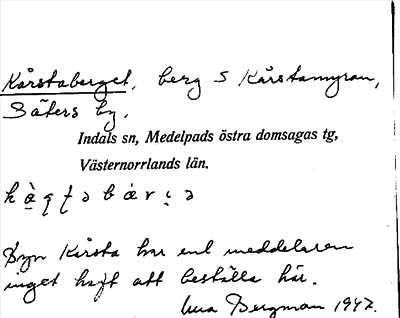 Kårstaberget, berg S Kårstamyran,
Säters by,
Indals sn, Medelpads östra domsagas tg,
Västernorrlands län.
Byn Kårsta har enl meddelaren
inget haft att beställa här.
Bergman 1947.